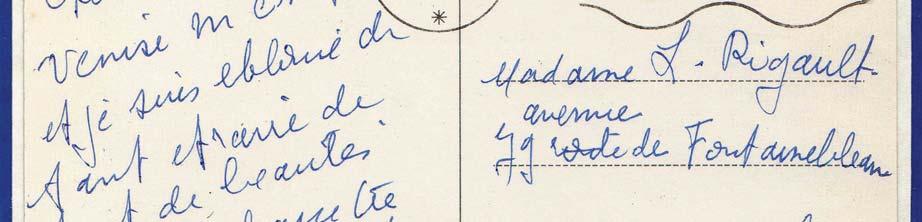 Venise m'
et je suis éblouie di
tant et ravie de
de beautés.
Madame L. Rigault.
avenue
79 route de Fontainebleau